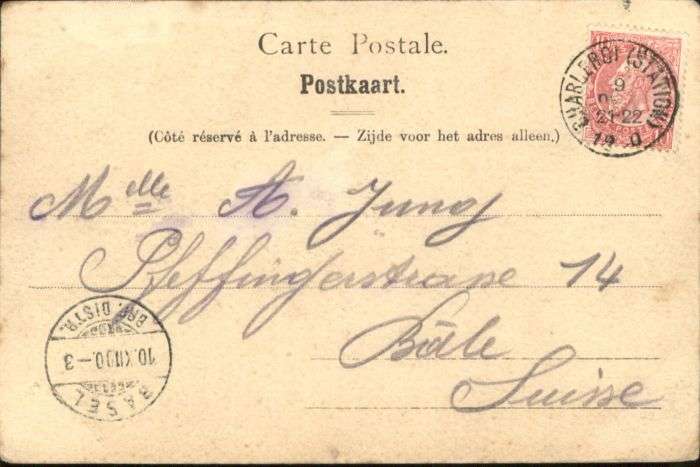 Carte Postale.
Postkaart.
(Côté réservé à l'adresse. — Zijde voor het adres alleen.)
CHARLEROI (STATION)
9
21-22
Melle A. Jung
Pfeffingerstrasse 14
Bâle
Suisse
BASEL
10.XII.00.-3
BRF. DISTR.